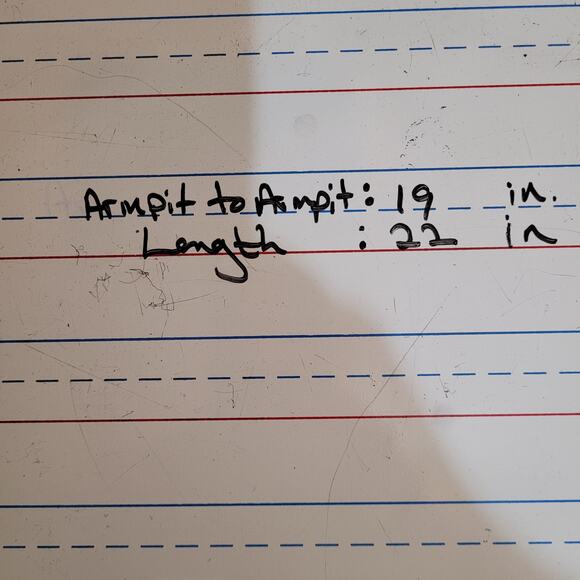 Armpit to Armpit: 19 in.
Length : 22 in